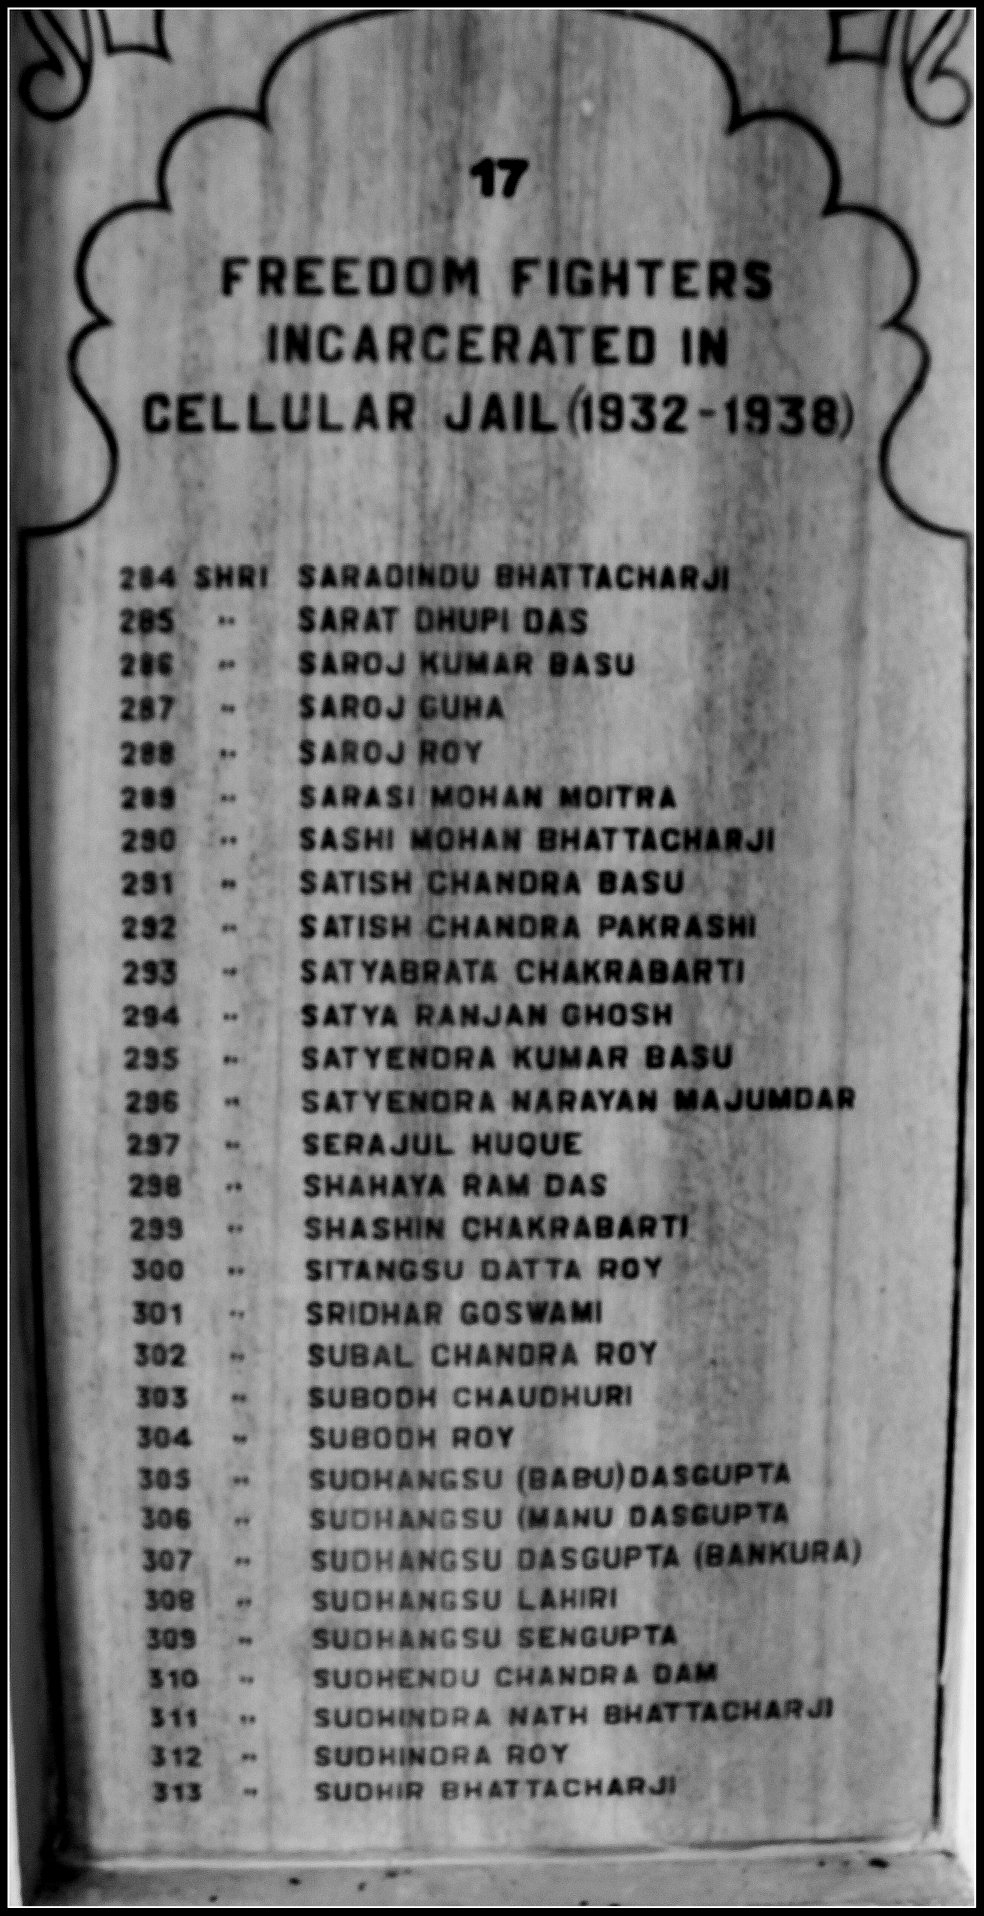 17
FREEDOM FIGHTERS
INCARCERATED IN
CELLULAR JAIL (1932-1938)
284 SHRI SARADINDU BHATTACHARJI
285 " SARAT DHUPI DAS
286 " SAROJ KUMAR BASU
287 " SAROJ GUHA
288 " SAROJ ROY
289 " SARASI MOHAN MOITRA
290 " SASHI MOHAN BHATTACHARJI
291 " SATISH CHANDRA BASU
292 " SATISH CHANDRA PAKRASHI
293 " SATYABRATA CHAKRABARTI
294 " SATYA RANJAN GHOSH
295 " SATYENDRA KUMAR BASU
296 " SATYENDRA NARAYAN MAJUMDAR
297 " SERAJUL HUQUE
298 " SHAHAYA RAM DAS
299 " SHASHIN CHAKRABARTI
300 " SITANGSU DATTA ROY
301 " SRIDHAR GOSWAMI
302 " SUBAL CHANDRA ROY
303 " SUBODH CHAUDHURI
304 " SUBODH ROY
305 " SUDHANGSU (BABU) DASGUPTA
306 " SUDHANGSU (MANU DASGUPTA
307 " SUDHANGSU DASGUPTA (BANKURA)
308 " SUDHANGSU LAHIRI
309 " SUDHANGSU SENGUPTA
310 " SUDHENDU CHANDRA DAM
311 " SUDHINDRA NATH BHATTACHARJI
312 " SUDHINDRA ROY
313 " SUDHIR BHATTACHARJI